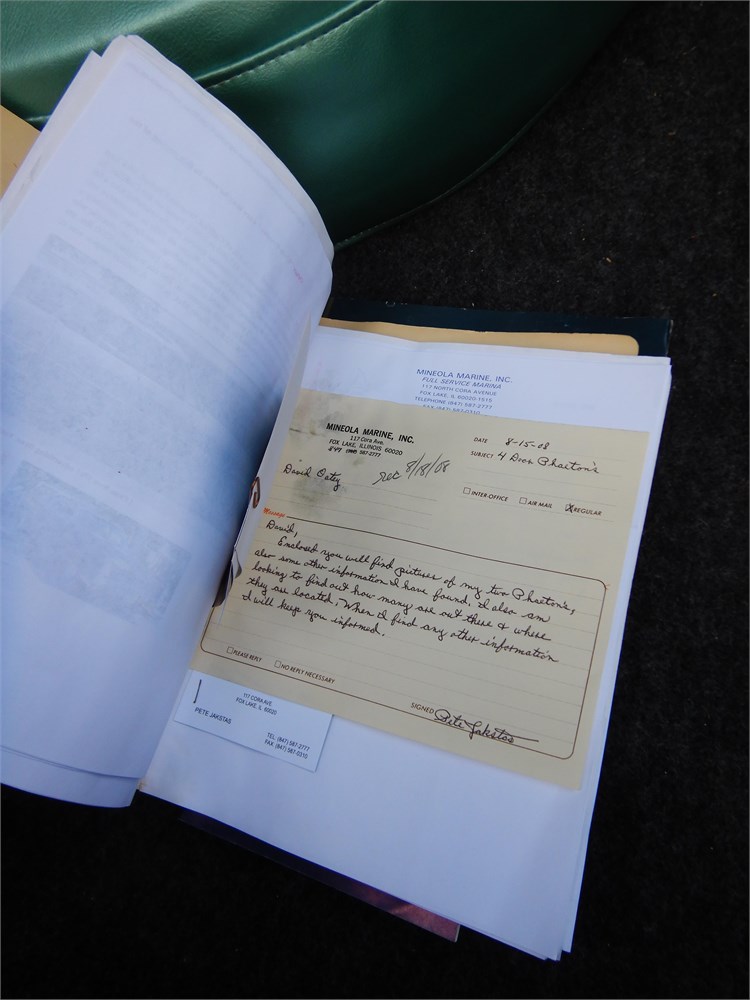 MINEOLA MARINE, INC.
FULL SERVICE MARINA
117 NORTH CORA AVENUE
FOX LAKE, IL 60020-1515
TELEPHONE (847) 587-2777
FAX (847) 587-0315
MINEOLA MARINE, INC.
117 Cora Ave.
FOX LAKE, ILLINOIS 60020
847 587-2777
DATE 8-15-08
SUBJECT 4 Door Phaeton's
David Oatey
rec 8/18/08
INTER-OFFICE AIR MAIL X REGULAR
Message
David,
Enclosed you will find pictures of my two Phaeton's,
also some other information I have found. I also am
looking to find out how many are out there & where
they are located. When I find any other information
I will keep you informed.
PLEASE REPLY NO REPLY NECESSARY
SIGNED Pete Jakstas
117 CORA AVE
FOX LAKE, IL 60020
PETE JAKSTAS
TEL: (847) 587-2777
FAX: (847) 587-0315